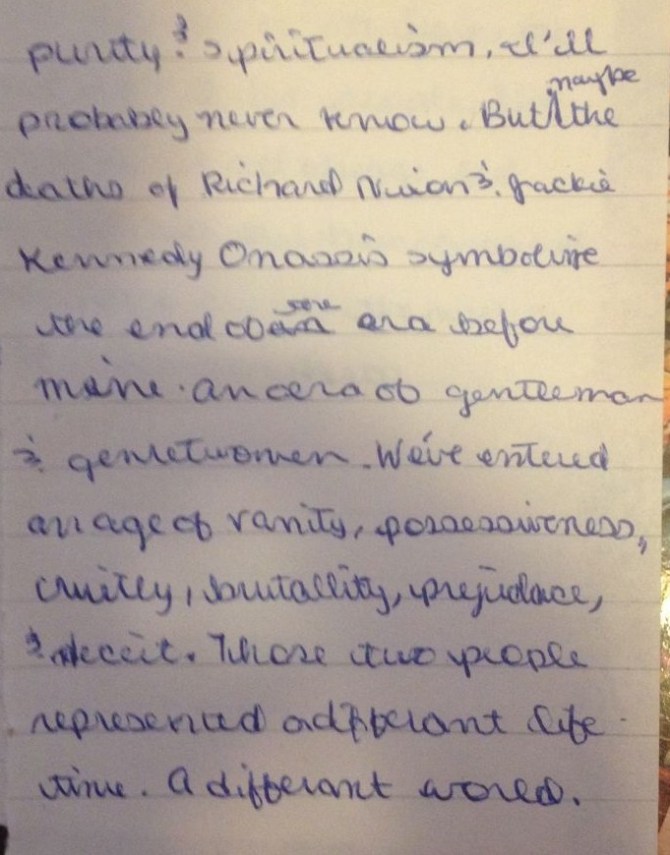 purity & spiritualism, I'll
probabley never know. But maybe the
deaths of Richard Nixion & Jackie
Kennedy Onassis symbolize
the end of the era before
mine. an cera of gentleman
& genletwomen. We've entered
an age of vanity, possessiveness,
cruitly, brutallity, prejudace,
& deceit. Those two people
represented a differant life
time. A differant world.